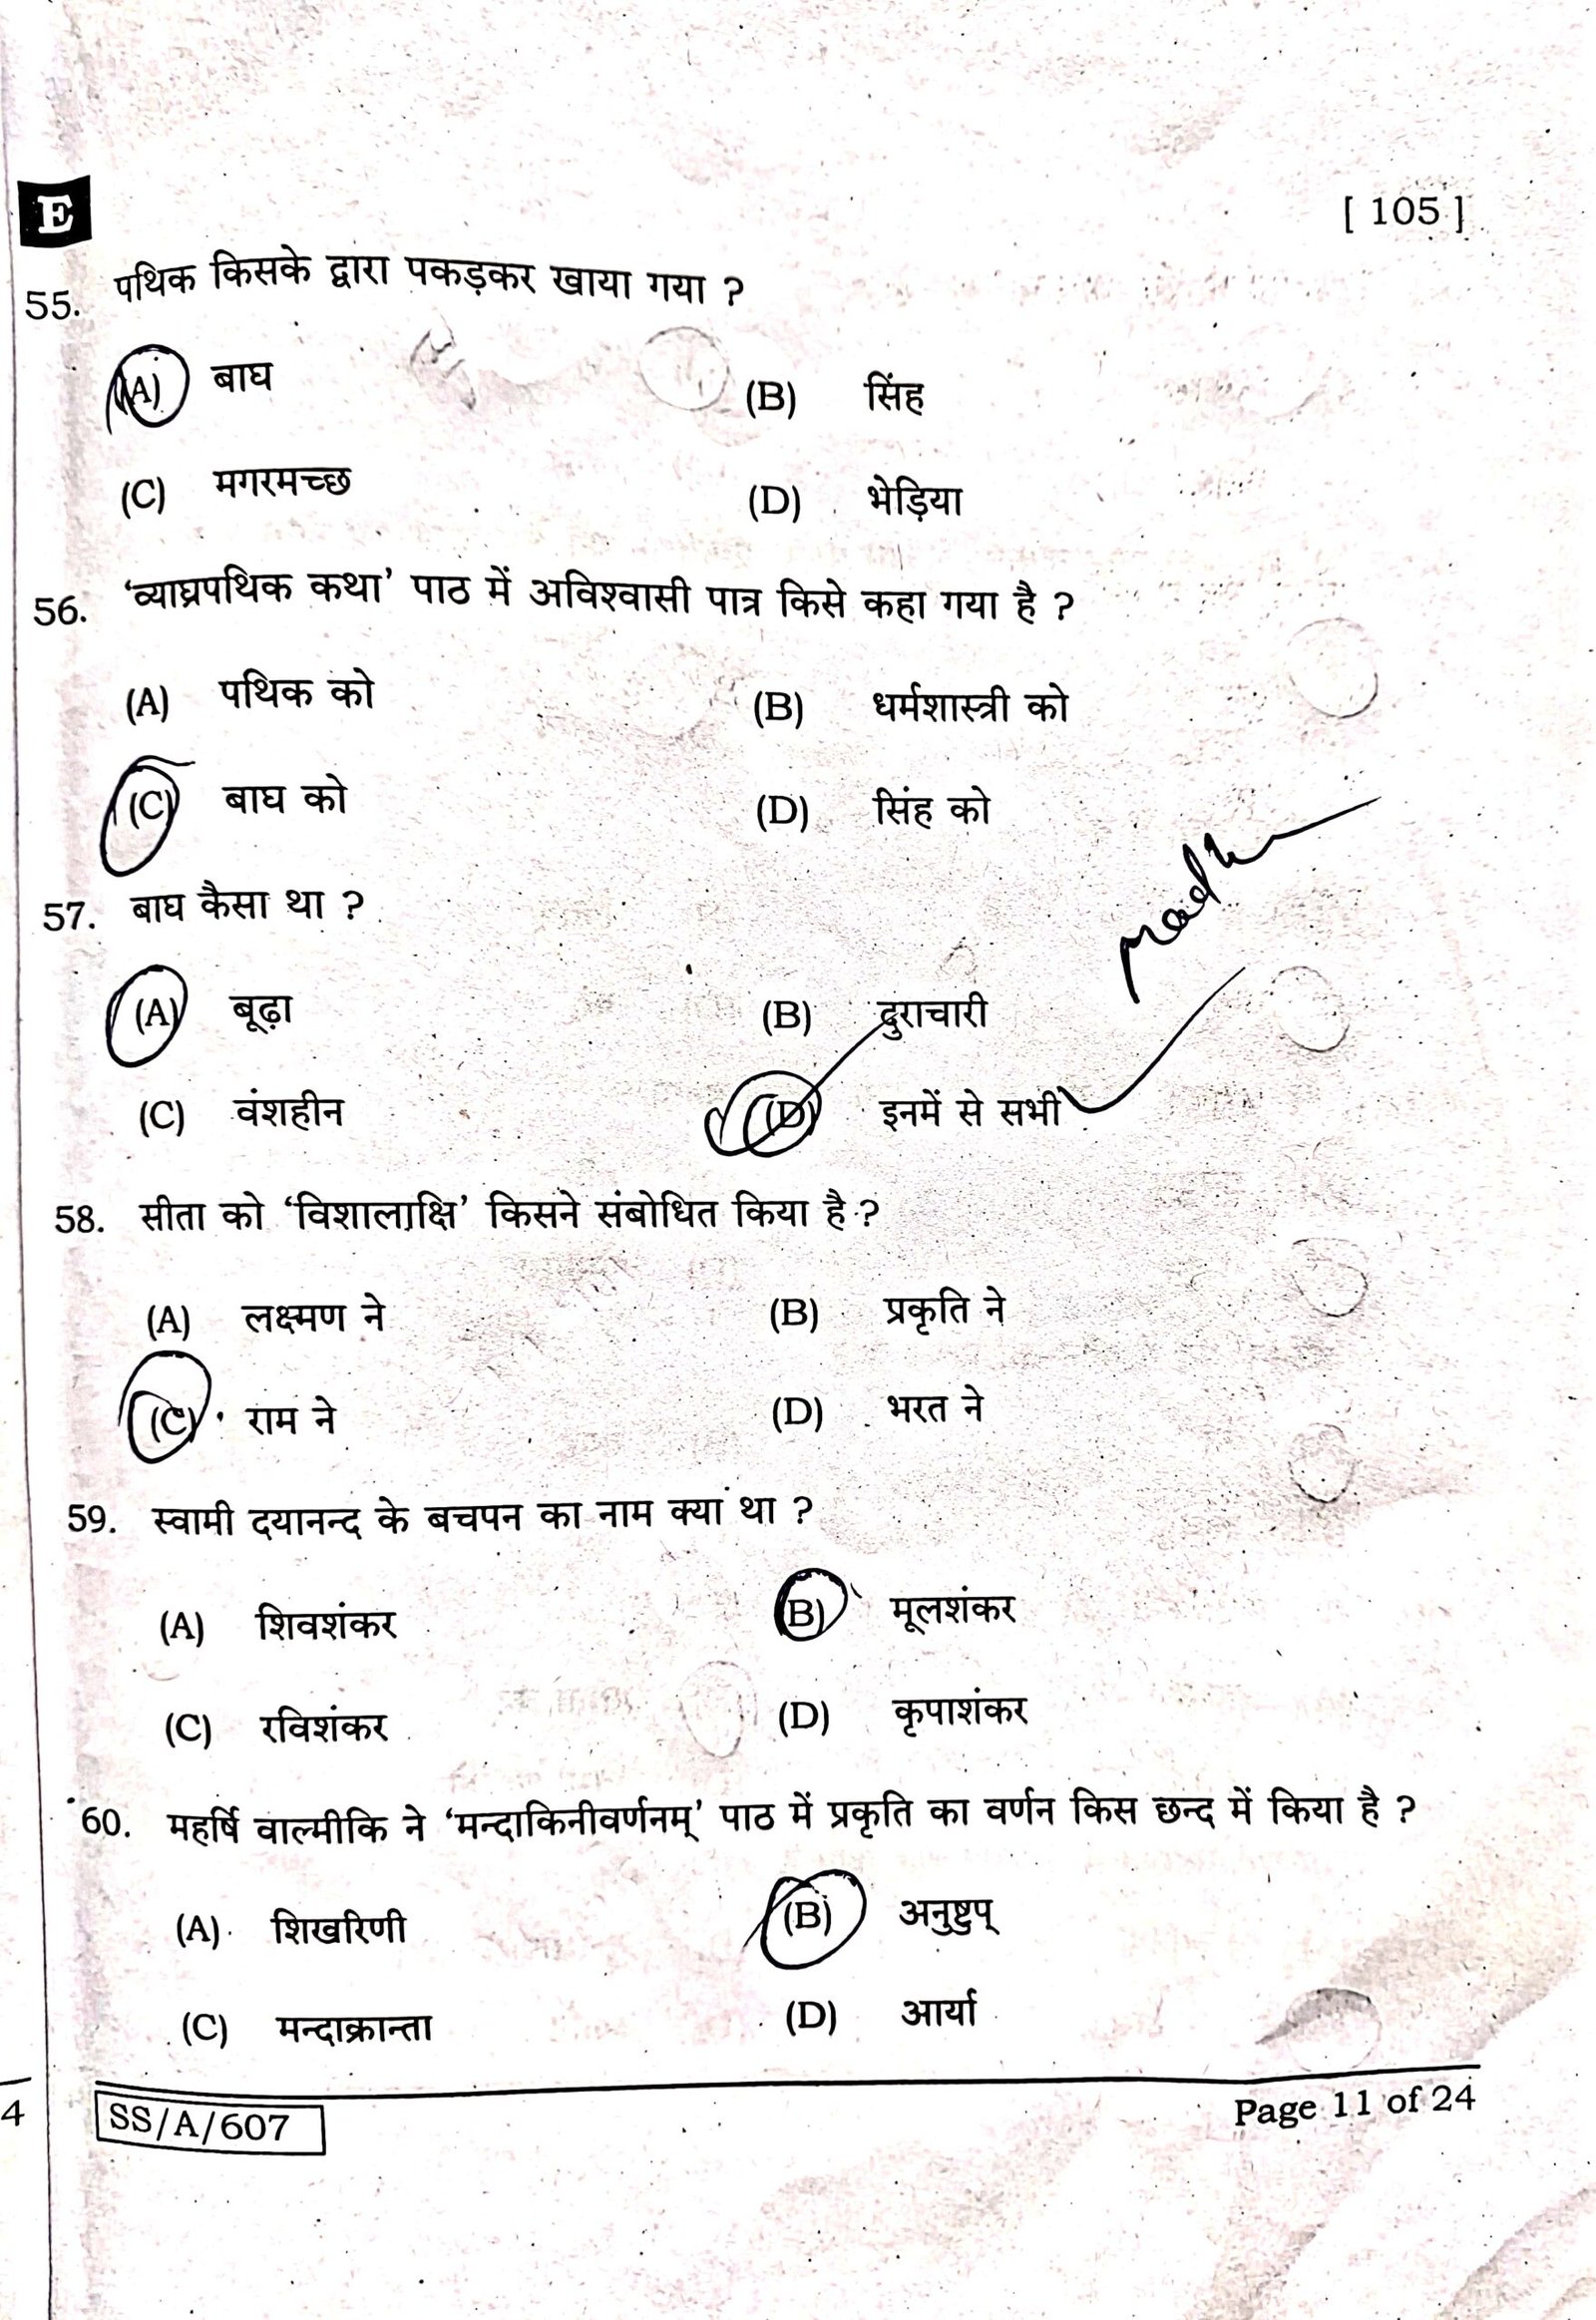 E
[ 105 ]
55. पथिक किसके द्वारा पकड़कर खाया गया ?
(A) बाघ (B) सिंह
(C) मगरमच्छ (D) भेड़िया
56. ‘व्याघ्रपथिक कथा’ पाठ में अविश्वासी पात्र किसे कहा गया है ?
(A) पथिक को (B) धर्मशास्त्री को
(C) बाघ को (D) सिंह को
57. बाघ कैसा था ?
(A) बूढ़ा (B) दुराचारी
(C) वंशहीन (D) इनमें से सभी
58. सीता को ‘विशालाक्षि’ किसने संबोधित किया है ?
(A) लक्ष्मण ने (B) प्रकृति ने
(C) राम ने (D) भरत ने
59. स्वामी दयानन्द के बचपन का नाम क्या था ?
(A) शिवशंकर (B) मूलशंकर
(C) रविशंकर (D) कृपाशंकर
60. महर्षि वाल्मीकि ने ‘मन्दाकिनीवर्णनम्’ पाठ में प्रकृति का वर्णन किस छन्द में किया है ?
(A) शिखरिणी (B) अनुष्टुप्
(C) मन्दाक्रान्ता (D) आर्या
4
SS/A/607
Page 11 of 24